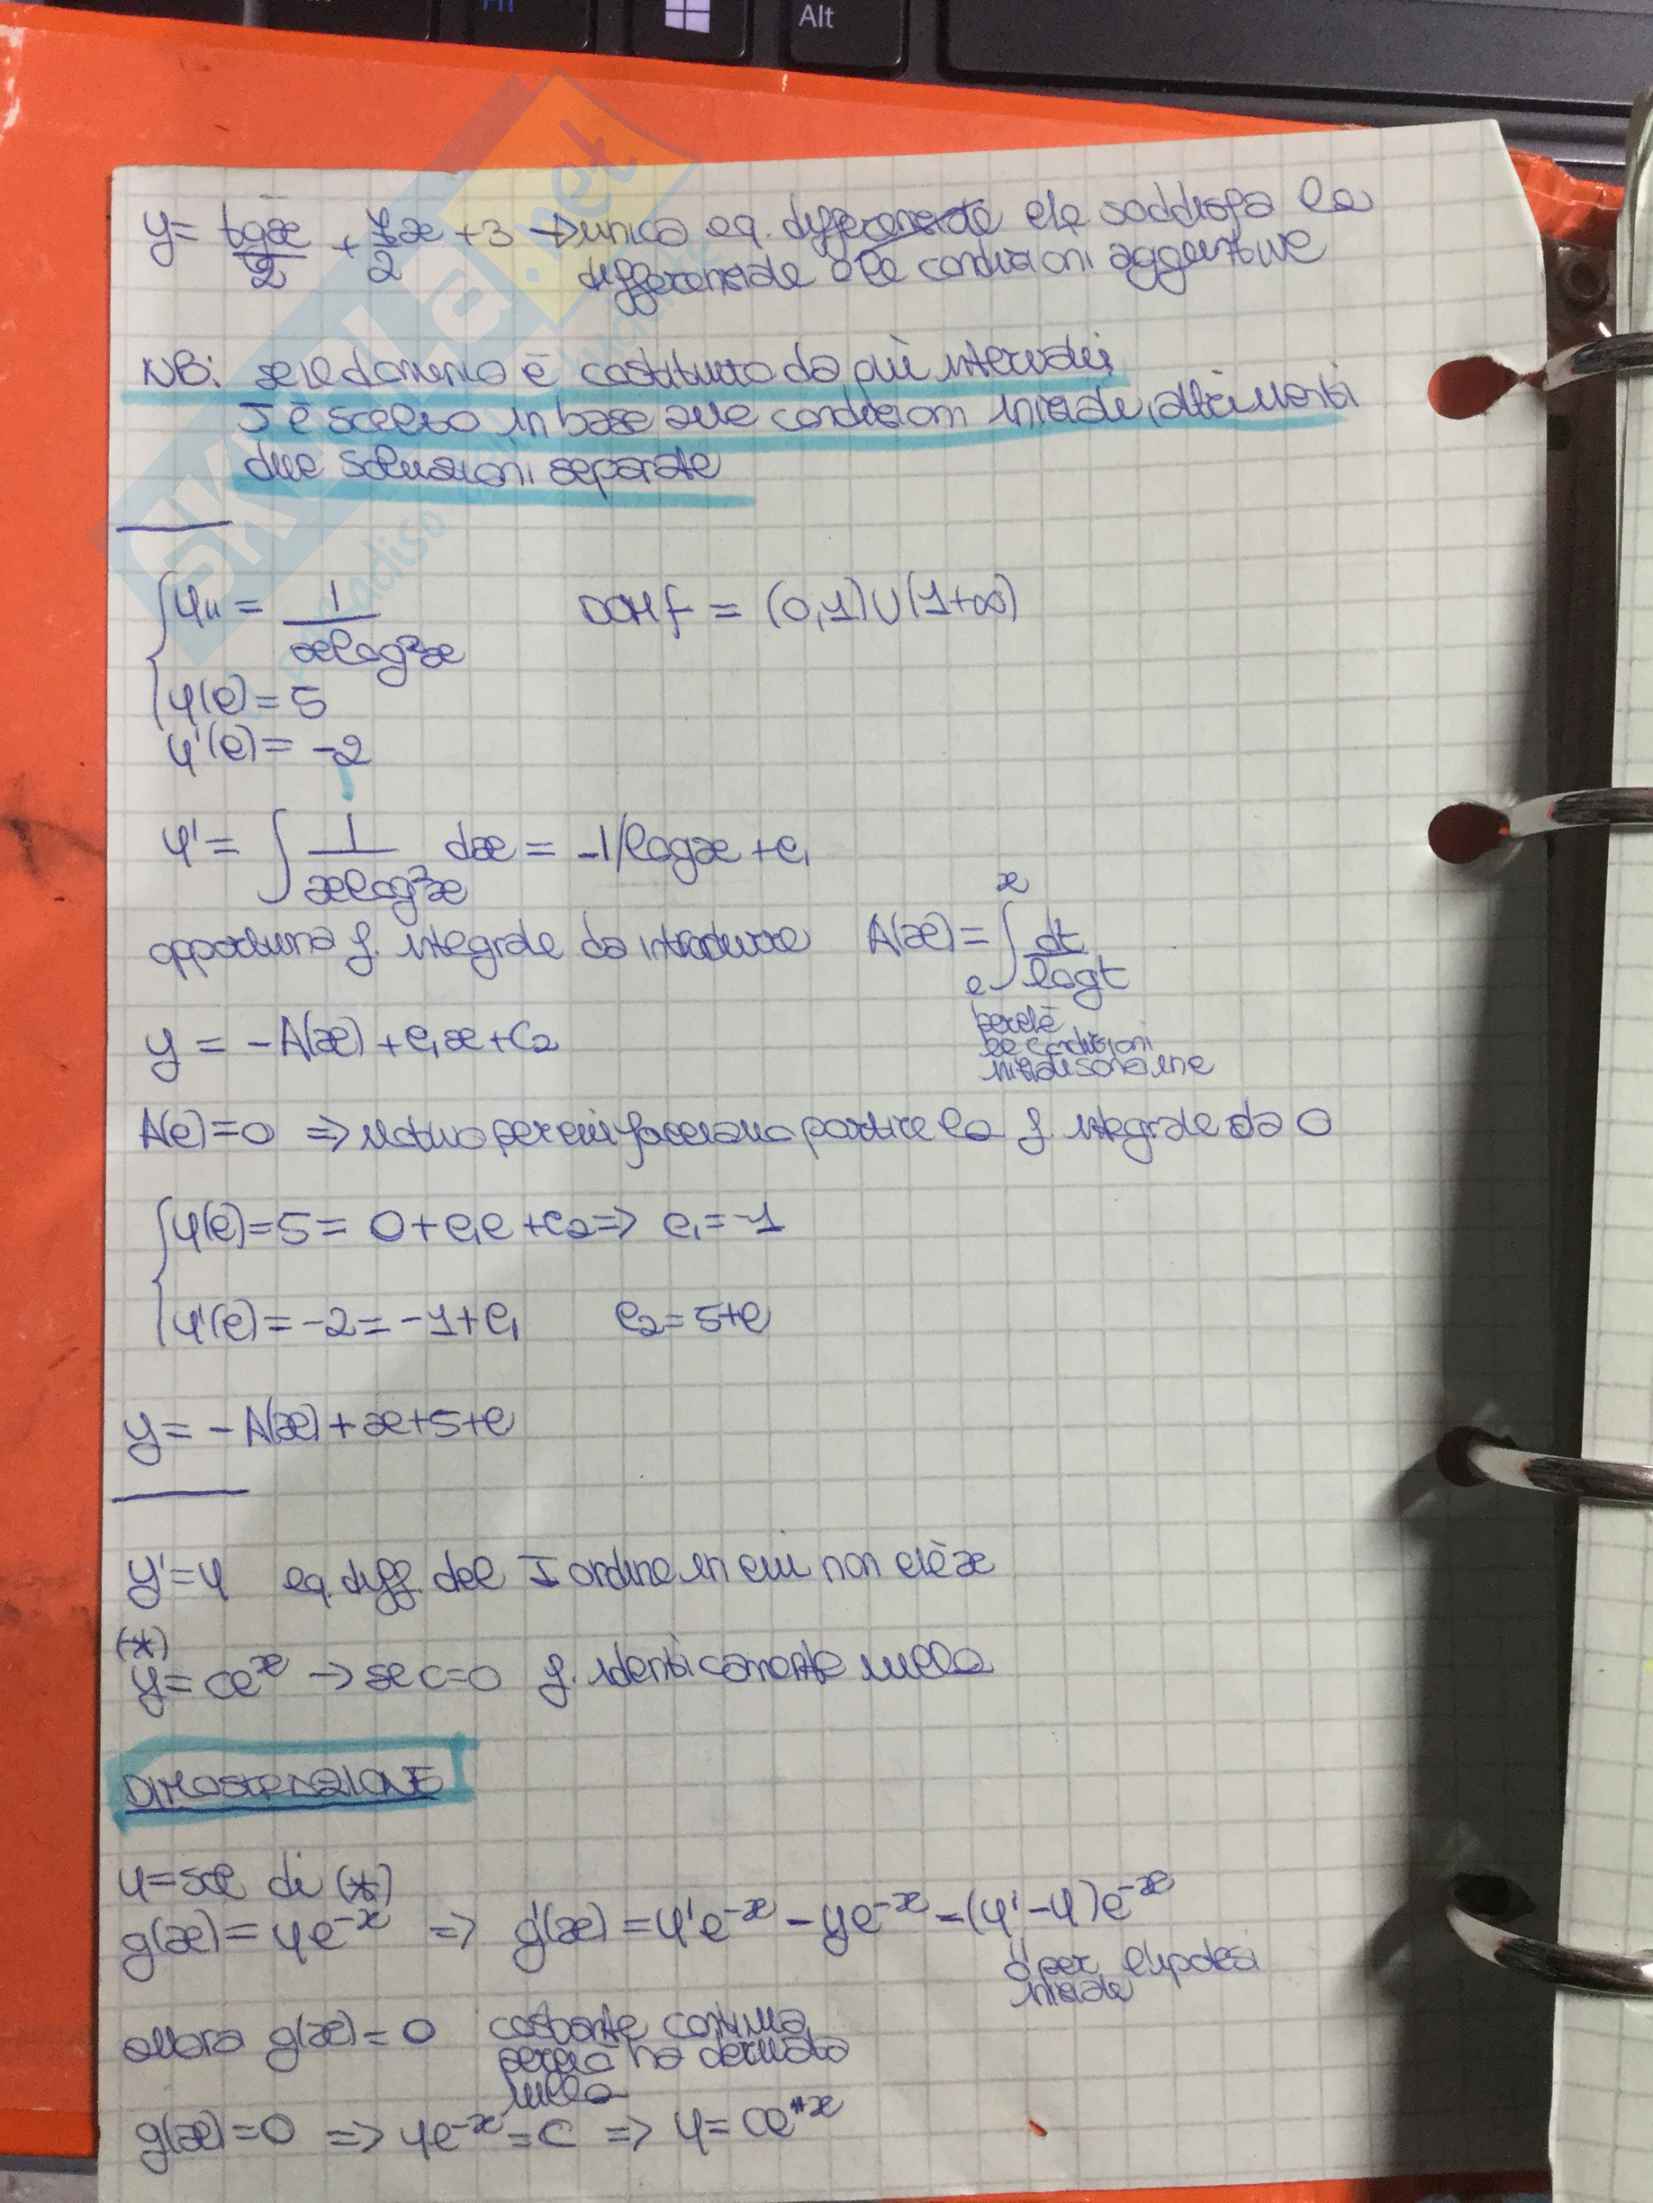 Fn
Alt
y = tgx/2 + 7/2 x + 3 → unica eq. differenziale che soddisfa la
differenziale e le condizioni aggiuntive
NB: se il dominio è costituito da più intervalli,
I è scelto in base alle condizioni iniziale, altrimenti
due soluzioni separate
y'' = 1/(xlog²x) DOM f = (0,1)∪(1+∞)
y(e) = 5
y'(e) = -2
y' = ∫ 1/(xlog²x) dx = -1/logx + c₁
opportuna f. integrale da introdurre A(x) = ∫ₑˣ dt/logt
perché
le condizioni
iniziali sono in e
y = -A(x) + c₁x + c₂
A(e) = 0 ⇒ motivo per cui facciamo partire la f. integrale da 0
y(e) = 5 = 0 + c₁e + c₂ ⇒ c₁ = -1
y'(e) = -2 = -1 + c₁ c₂ = 5+e
y = -A(x) + x + 5 + e
y' = y eq. diff. del I ordine in cui non c'è x
(*)
y = ceˣ → se c=0 f. identicamente nulla
DIMOSTRAZIONE
y = sol di (*)
g(x) = ye⁻ˣ ⇒ g'(x) = y'e⁻ˣ - ye⁻ˣ = (y'-y)e⁻ˣ
0 per ipotesi
iniziale
allora g(x) = 0 costante continua,
perciò ha derivata
nulla
g(x) = 0 ⇒ ye⁻ˣ = c ⇒ y = ceˣ
SKUOLA.net